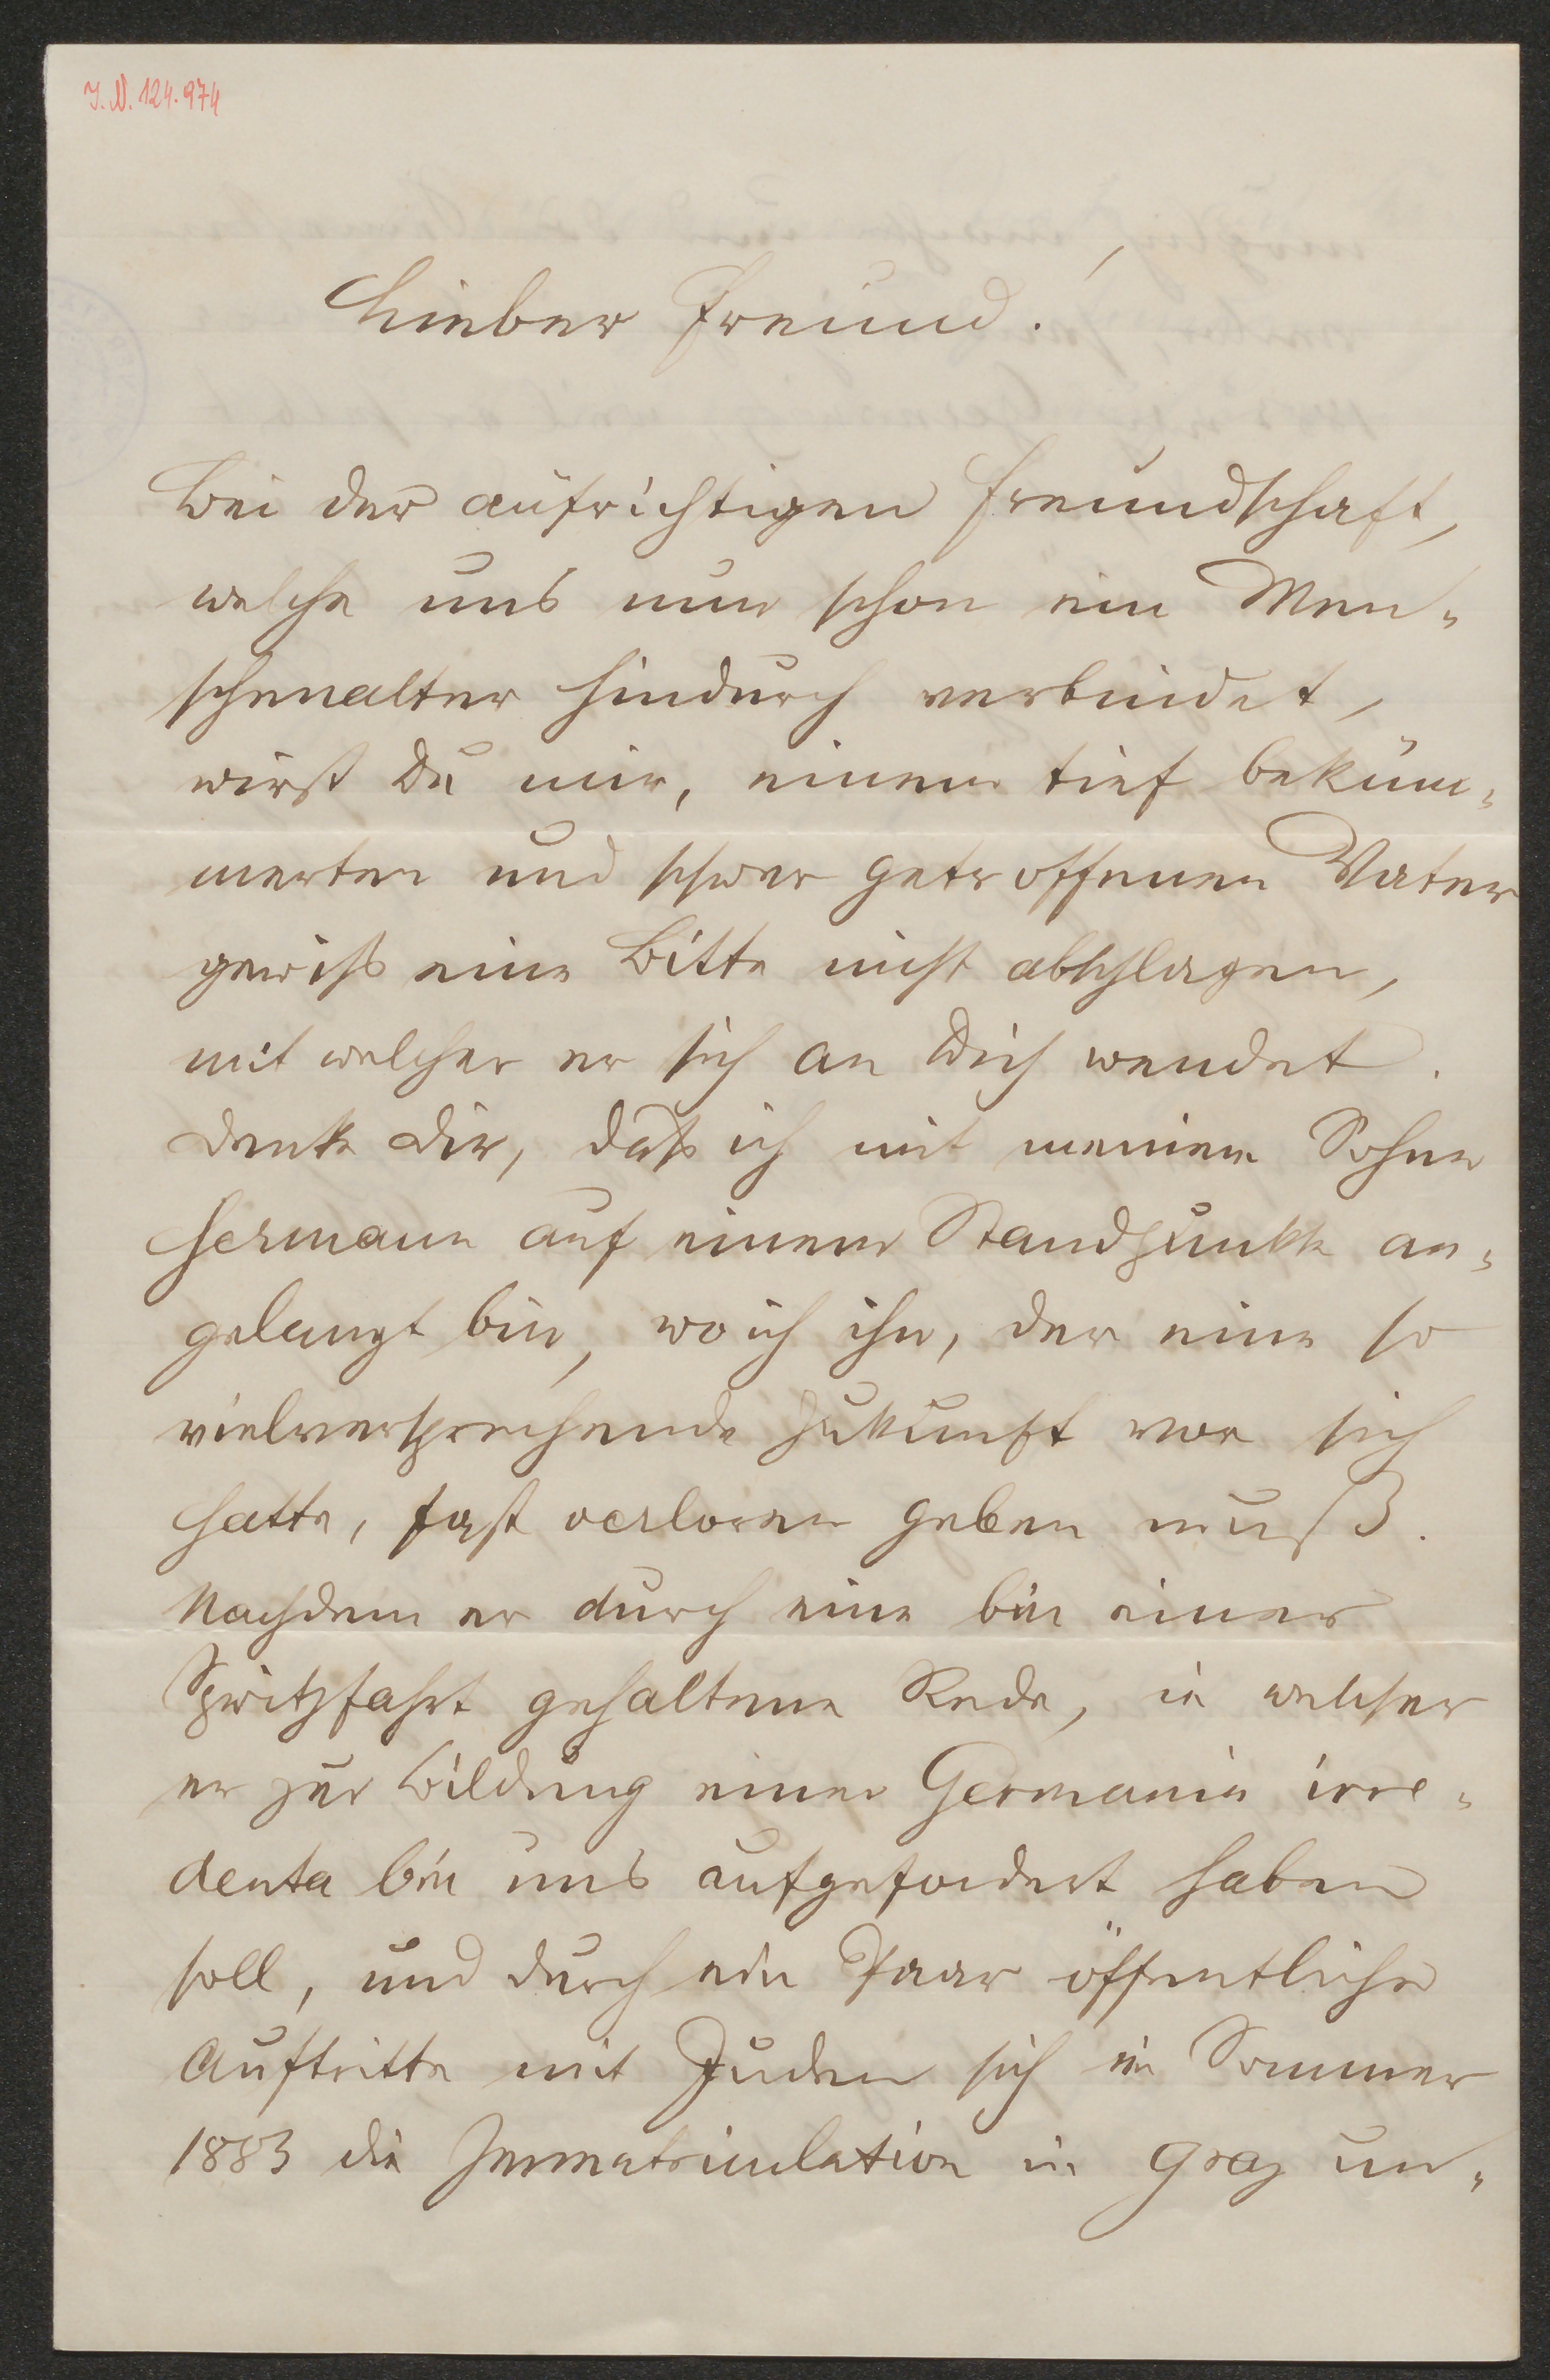 J. N. 124.974
Lieber Freund!
Bei der aufrichtigen Freundschaft,
welche uns nun schon ein Men-
schenalter hindurch verbindet,
wirst Du mir, einem tief beküm-
merten und schwer getroffenen Vater
gewiß eine Bitte nicht abschlagen,
mit welcher er sich an Dich wendet.
Denke Dir, daß ich mit meinem Sohne
Hermann auf einem Standpunkte an-
gelangt bin, wo ich ihn, der eine so
vielversprechende Zukunft vor sich
hatte, fast verloren geben muß.
Nachdem er durch eine bei einer
Spritzfahrt gehaltene Rede, in welcher
er zur Bildung einer Germania irre-
denta bei uns aufgefordert haben
soll, und durch ein Paar öffentliche
Auftritte mit Juden sich im Sommer
1883 die Immatriculation in Graz un-